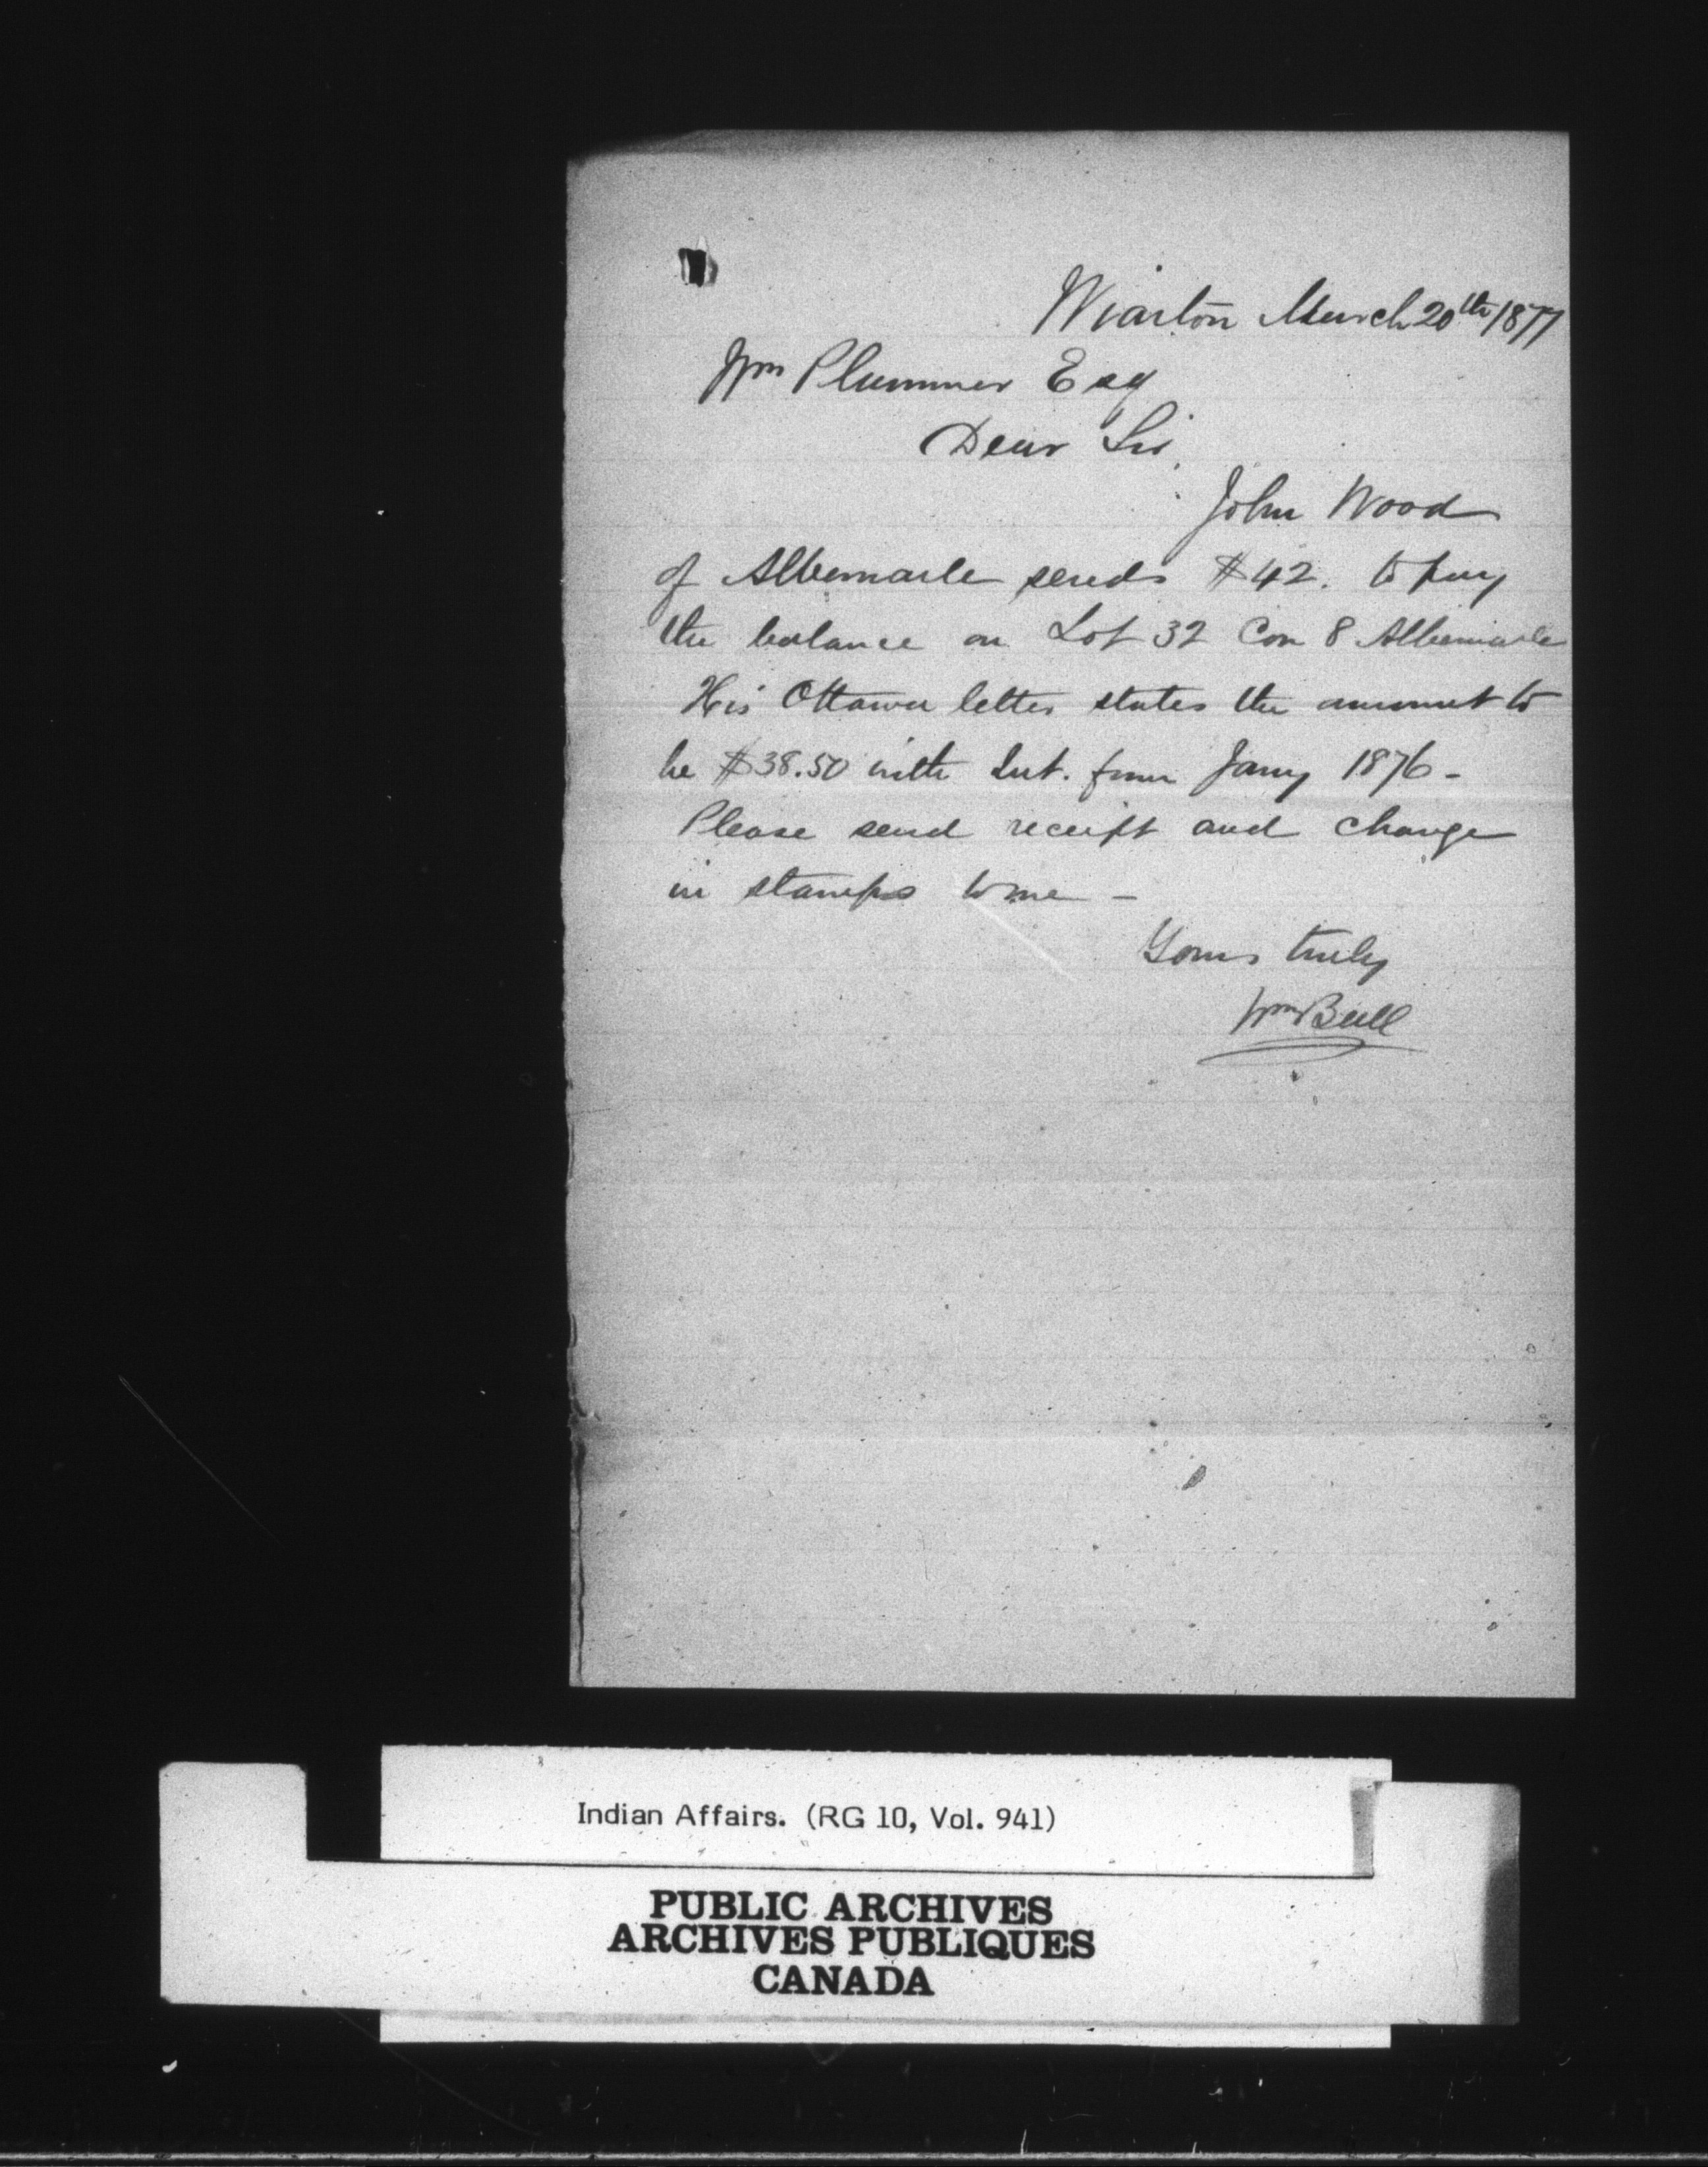 Wiarton March 20th/1877
Wm Plummer Esq
Dear Sir,
John Wood
of Albemarle sends $42. to pay
the balance on Lot 32 Con 8 Albemarle
His Ottawa letter states the amount to
be $38.50 with Int. from Jany 1876 -
Please send receipt and change
in stamps to me -
Yours truly
Wm Bull
Indian Affairs. (RG 10, Vol. 941)
PUBLIC ARCHIVES
ARCHIVES PUBLIQUES
CANADA